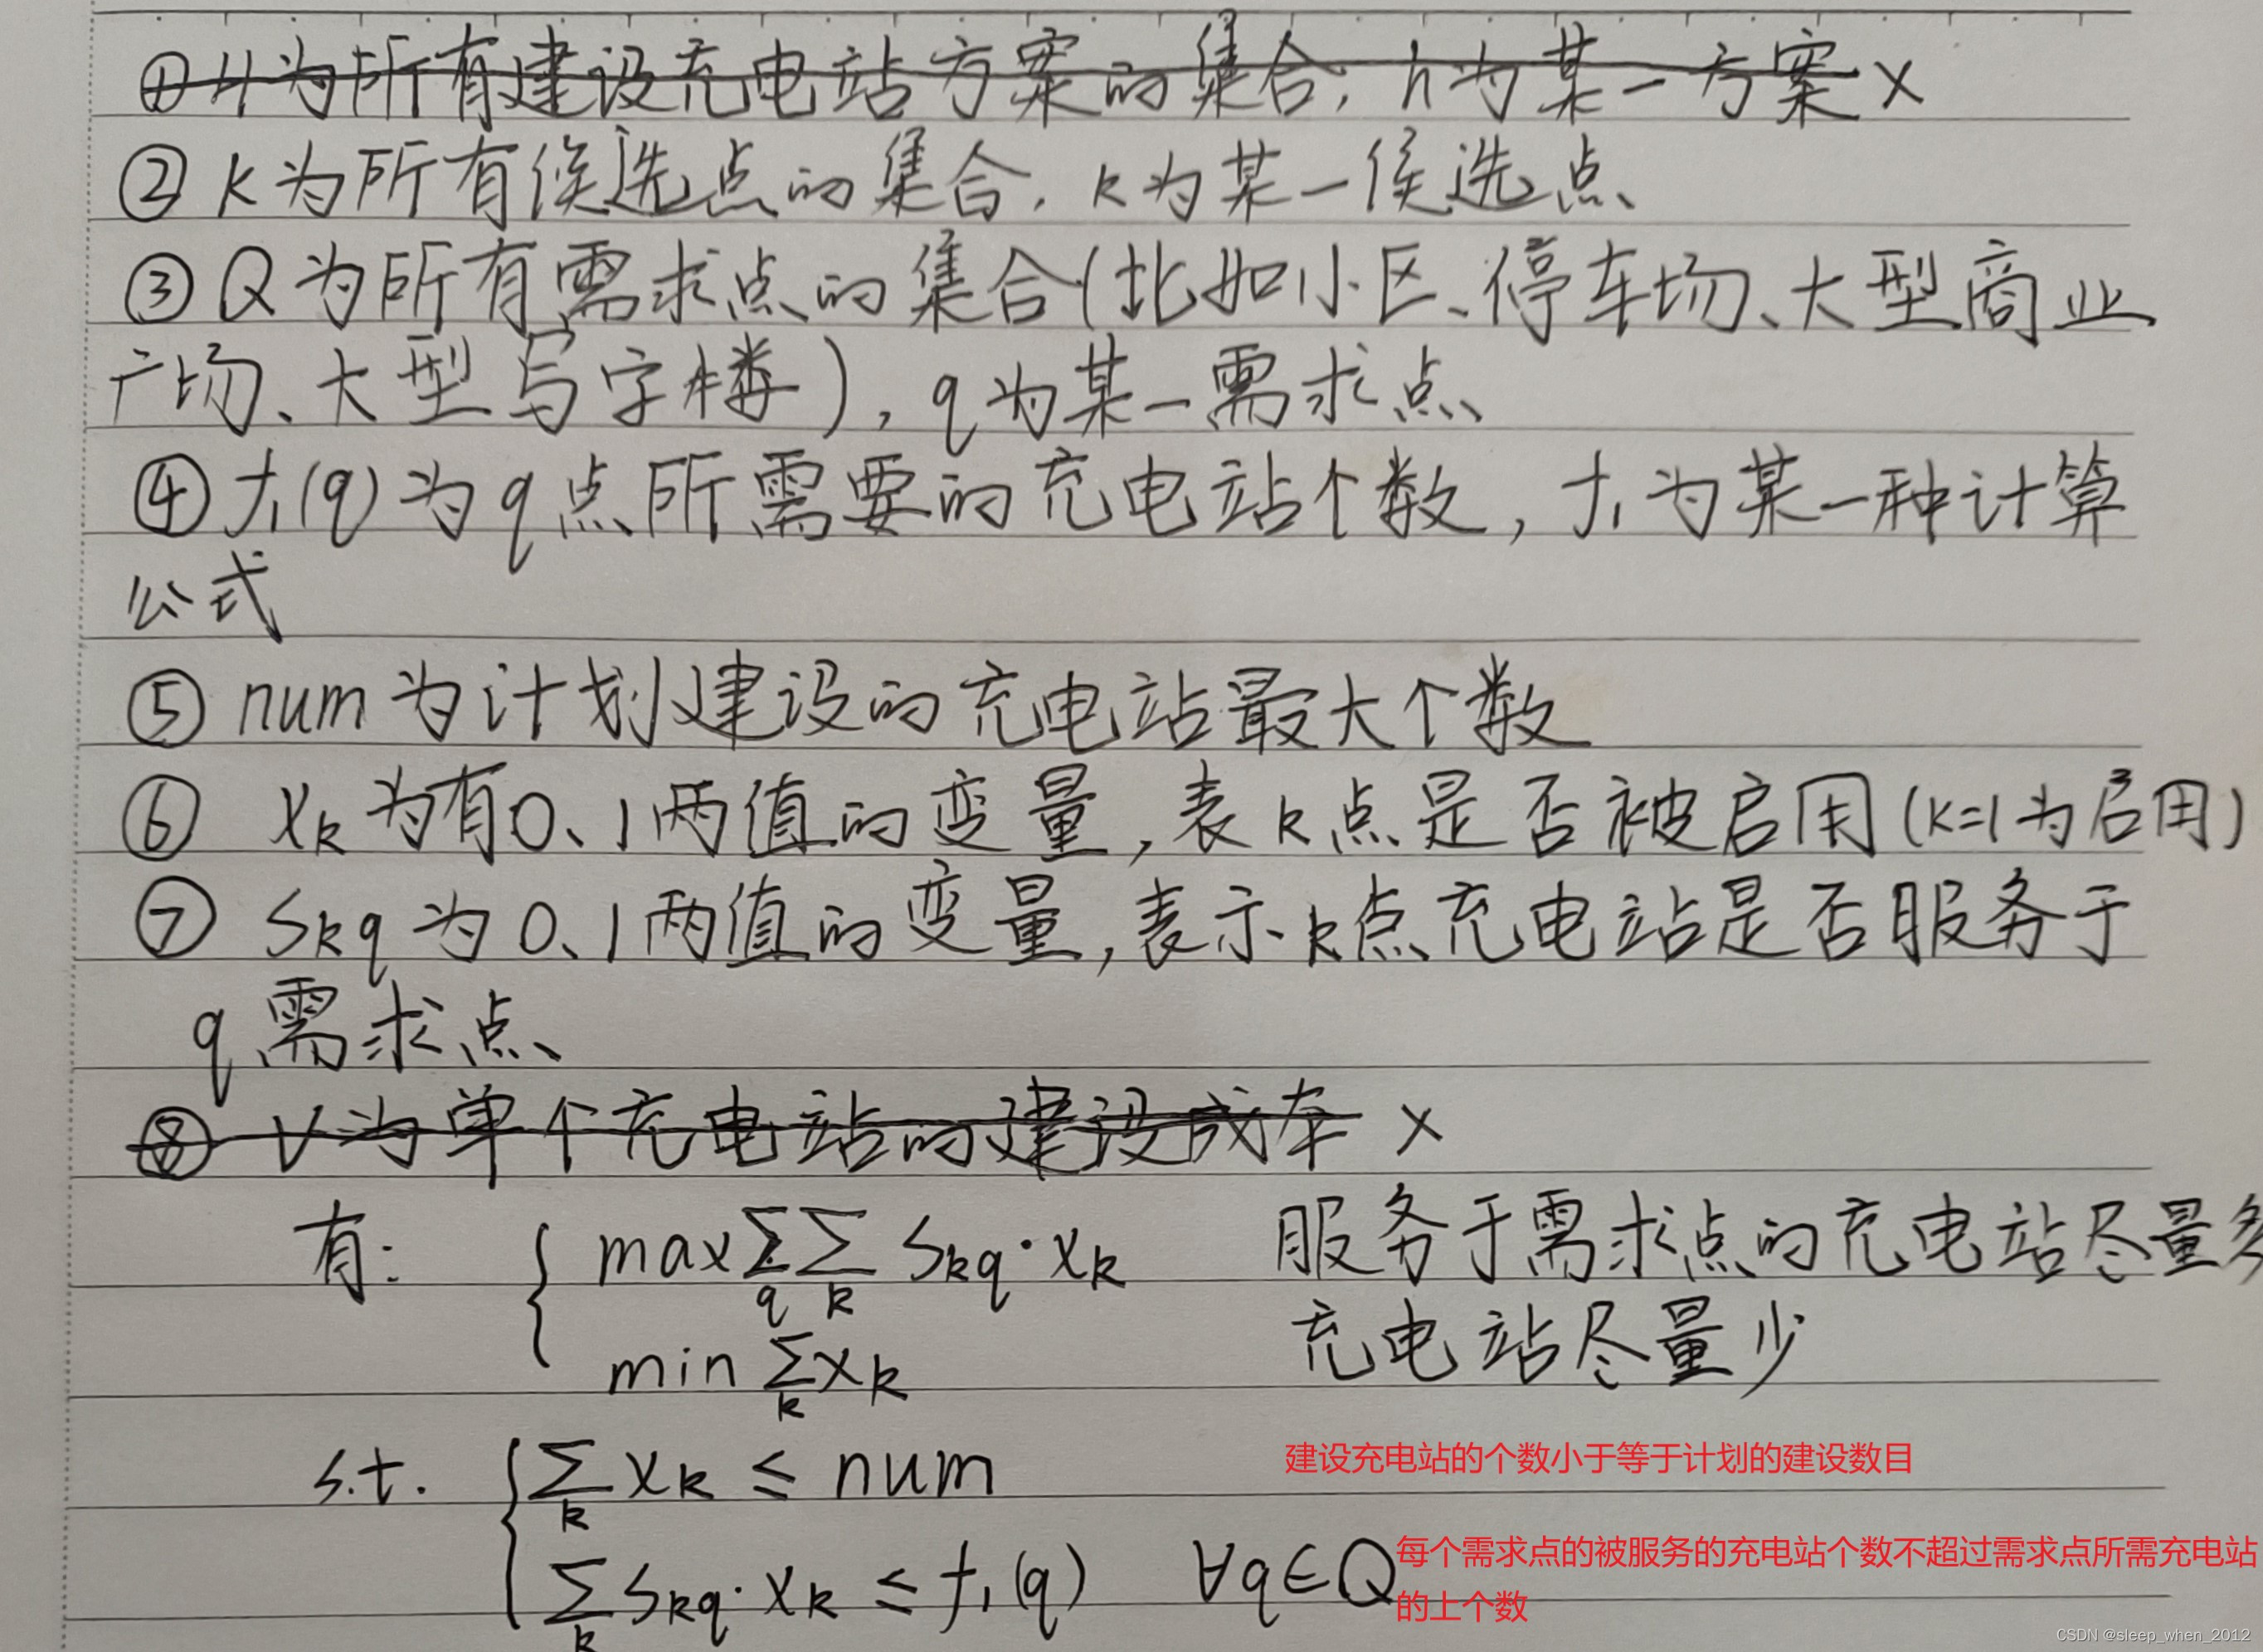 ①H为所有建设充电站方案的集合,h为某一方案 ×
②K为所有候选点的集合,k为某一候选点
③Q为所有需求点的集合(比如小区、停车场、大型商业
广场、大型写字楼),q为某一需求点
④f₁(q)为q点所需要的充电站个数,f₁为某一种计算
公式
⑤num为计划建设的充电站最大个数
⑥ xₖ为有0、1两值的变量,表k点是否被启用(k=1为启用)
⑦ Skq为0、1两值的变量,表示k点充电站是否服务于
q需求点
⑧ V为单个充电站的建设成本 ×
有: { max∑q∑k Skq·xk 服务于需求点的充电站尽量多
min∑k xk 充电站尽量少
s.t. { ∑k xk ≤ num 建设充电站的个数小于等于计划的建设数目
∑k Skq·xk ≤ f₁(q) ∀q∈Q 每个需求点的被服务的充电站个数不超过需求点所需充电站
的上个数
CSDN @sleep_when_2012